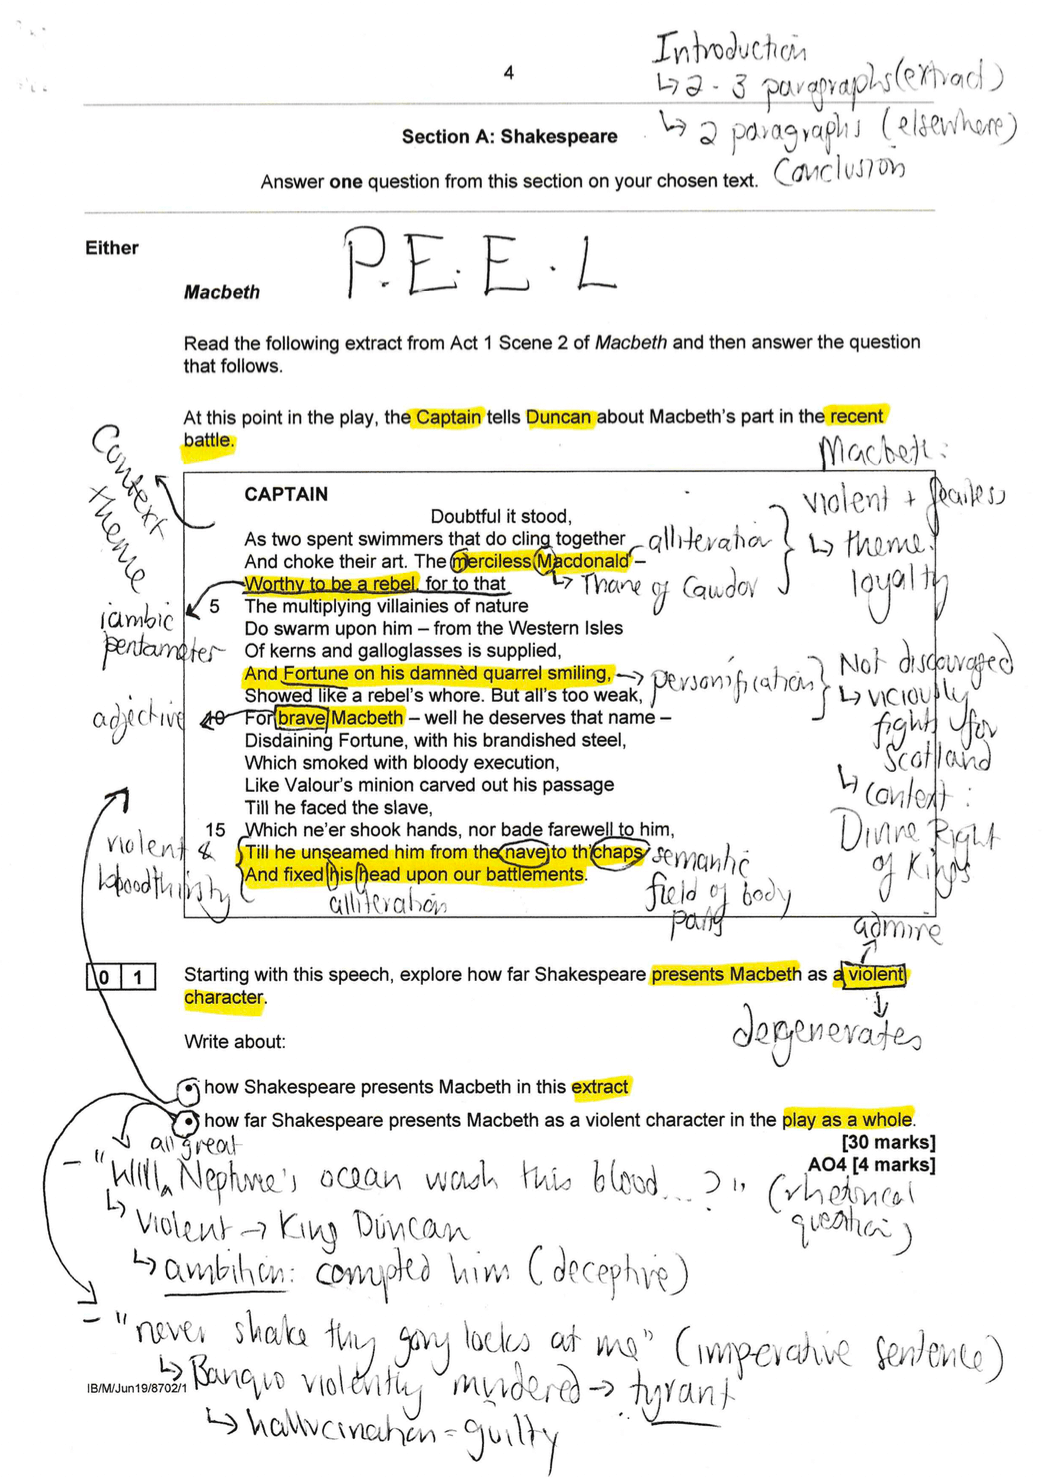 Introduction
↳ 2 - 3 paragraphs (extract)
4
↳ 2 paragraphs (elsewhere)
Conclusion
Section A: Shakespeare
Answer one question from this section on your chosen text.
Either
P.E.E.L
Macbeth
Read the following extract from Act 1 Scene 2 of Macbeth and then answer the question
that follows.
At this point in the play, the Captain tells Duncan about Macbeth's part in the recent
battle.
Context
theme
Macbeth:
violent + fearless
↳ theme:
loyalty
CAPTAIN
Doubtful it stood,
As two spent swimmers that do cling together
And choke their art. The merciless Macdonald –
alliteration
Worthy to be a rebel, for to that
↳ Thane of Cawdor
5 The multiplying villainies of nature
iambic
pentameter
Do swarm upon him – from the Western Isles
Of kerns and galloglasses is supplied,
And Fortune on his damnèd quarrel smiling,
→ personification
Not discouraged
↳ viciously
fight for
Scotland
↳ context:
Divine Right
of Kings
Showed like a rebel's whore. But all's too weak,
adjective
10 For brave Macbeth – well he deserves that name –
Disdaining Fortune, with his brandished steel,
Which smoked with bloody execution,
Like Valour's minion carved out his passage
Till he faced the slave,
15 Which ne'er shook hands, nor bade farewell to him,
violent &
bloodthirsty
Till he unseamed him from the nave to th'chaps
And fixed his head upon our battlements.
semantic
field of body
parts
alliteration
admire
0 1
Starting with this speech, explore how far Shakespeare presents Macbeth as a violent
character.
degenerates
Write about:
• how Shakespeare presents Macbeth in this extract
• how far Shakespeare presents Macbeth as a violent character in the play as a whole.
[30 marks]
AO4 [4 marks]
all great
- "Will Neptune's ocean wash this blood...?" (rhetorical
question)
↳ violent → King Duncan
↳ ambition: corrupted him (deceptive)
- "never shake thy gory locks at me" (imperative sentence)
↳ Banquo violently murdered → tyrant
IB/M/Jun19/8702/1
↳ hallucination = guilty